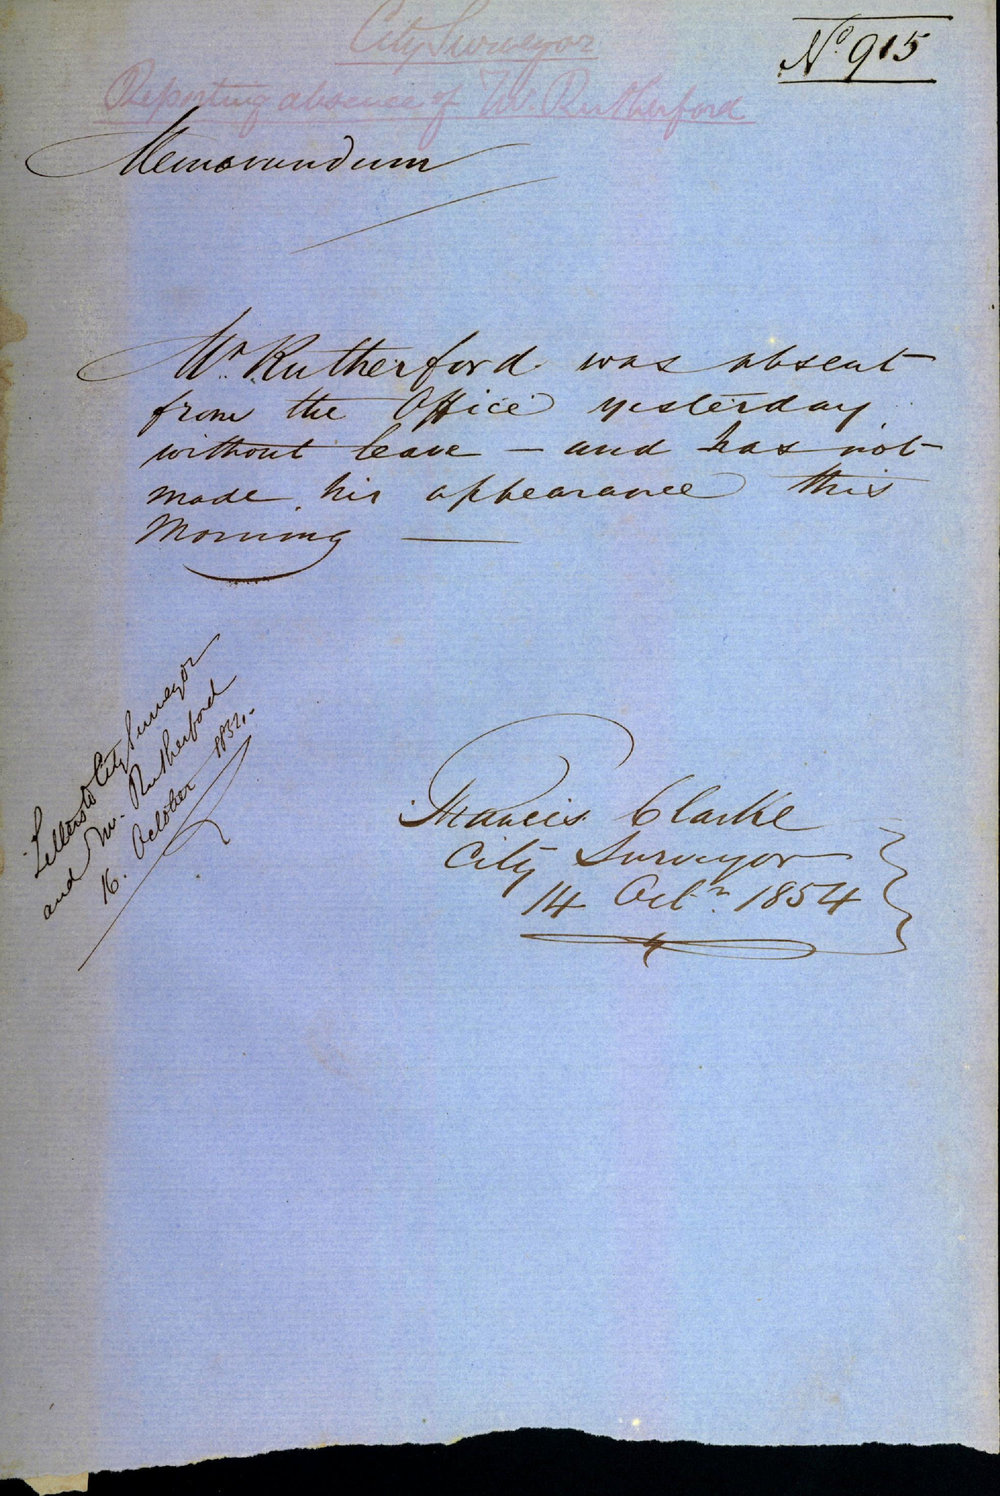 City Surveyor
No 915
Reporting absence of Mr. Rutherford
Memorandum
Mr. Rutherford was absent
from the Office yesterday
without leave — and has not
made his appearance this
Morning —
Letters to City Surveyor
and Mr. Rutherford
16. October
Francis Clarke
City Surveyor
14 Octr. 1854